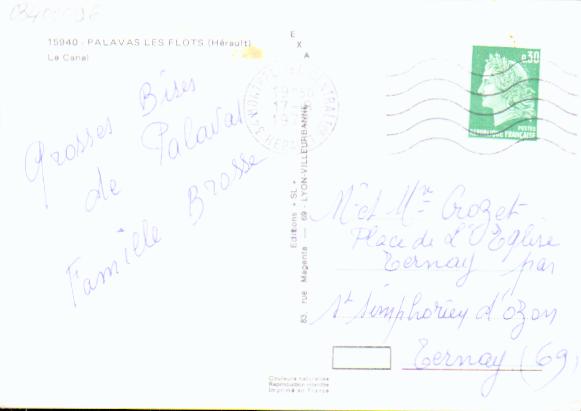 15940 - PALAVAS LES FLOTS (Hérault)
Le Canal
Grosses Bises
de Palavas
Famille Brosse
EXA
Editions « SL »
83, rue Magenta — 69 - LYON-VILLEURBANNE
0,30
POSTES
REPUBLIQUE FRANÇAISE
M et Mme Crozet
Place de L'Eglise
Ternay par
St Symphorien d'Ozon
Ternay (69)
Couleurs naturelles
Reproduction interdite
Imprimé en France